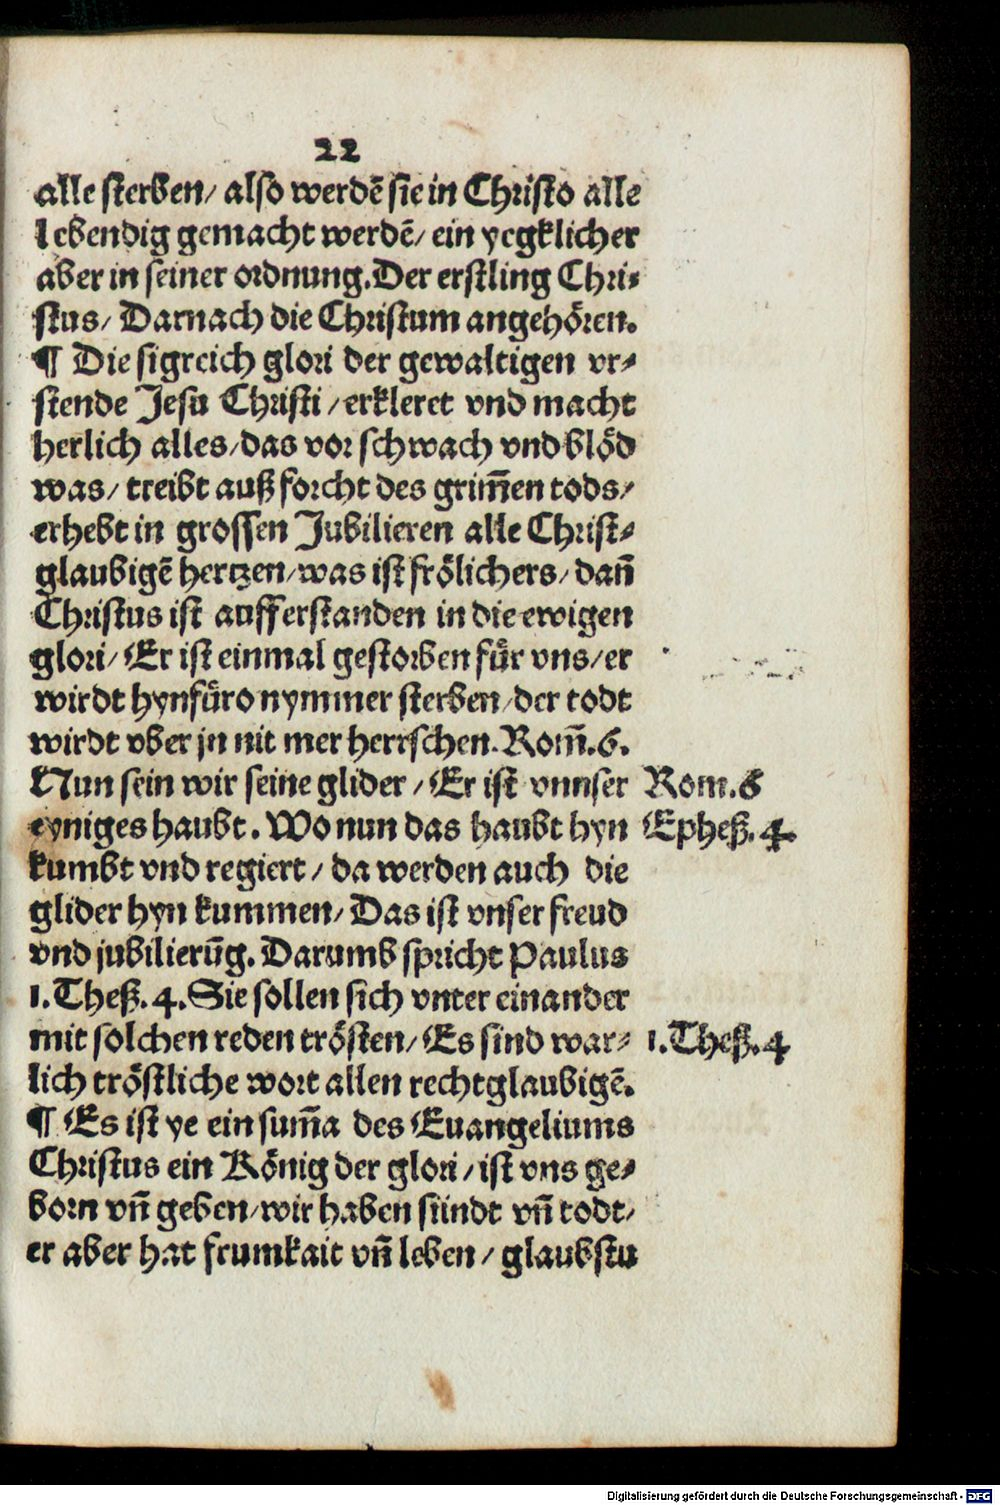 22
alle sterben/ also werdē sie in Christo alle
lebendig gemacht werdē/ ein yegklicher
aber in seiner ordnung. Der erstling Chri⸗
stus/ Darnach die Christum angehören.
¶ Die sigreich glori der gewaltigen vr⸗
stende Jesu Christi / erkleret vnd macht
herlich alles/ das vor schwach vnd blöd
was/ treibt auß forcht des grim̄en tods/
erhebt in grossen Jubilieren alle Christ⸗
glaubigē hertzen/ was ist frölichers/ dan̄
Christus ist aufferstanden in die ewigen
glori/ Er ist einmal gestorben fu͏̈r vns/ er
wirdt hynfüro nymmer sterben/ der todt
wirdt vber jn nit mer herrschen. Rom̄. 6.
Nun sein wir seine glider / Er ist vnnser Rom. 6
eyniges haubt. Wo nun das haubt hyn Epheß. 4.
kumbt vnd regiert / da werden auch die
glider hyn kummen/ Das ist vnser freud
vnd jubilierūg. Darumb spricht Paulus
1. Theß. 4. Sie sollen sich vnter einander
mit solchen reden trösten/ Es sind war⸗ 1. Theß. 4
lich tröstliche wort allen rechtglaubigē.
¶ Es ist ye ein sum̄a des Euangeliums
Christus ein König der glori / ist vns ge⸗
born vn̄ geben/ wir haben sündt vn̄ todt/
er aber hat frumkait vn̄ leben / glaubstu
Digitalisierung gefördert durch die Deutsche Forschungsgemeinschaft - DFG